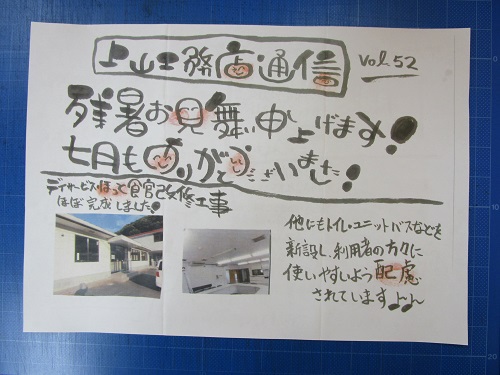 上山工務店通信
Vol.52
残暑お見舞い申し上げます！
七月もありがとうございました！
デイサービスほっと館宮改修工事
ほぼ完成しました！
他にもトイレ・ユニットバスなどを
新設し、利用者の方々に
使いやすいよう配慮
されています♪♪